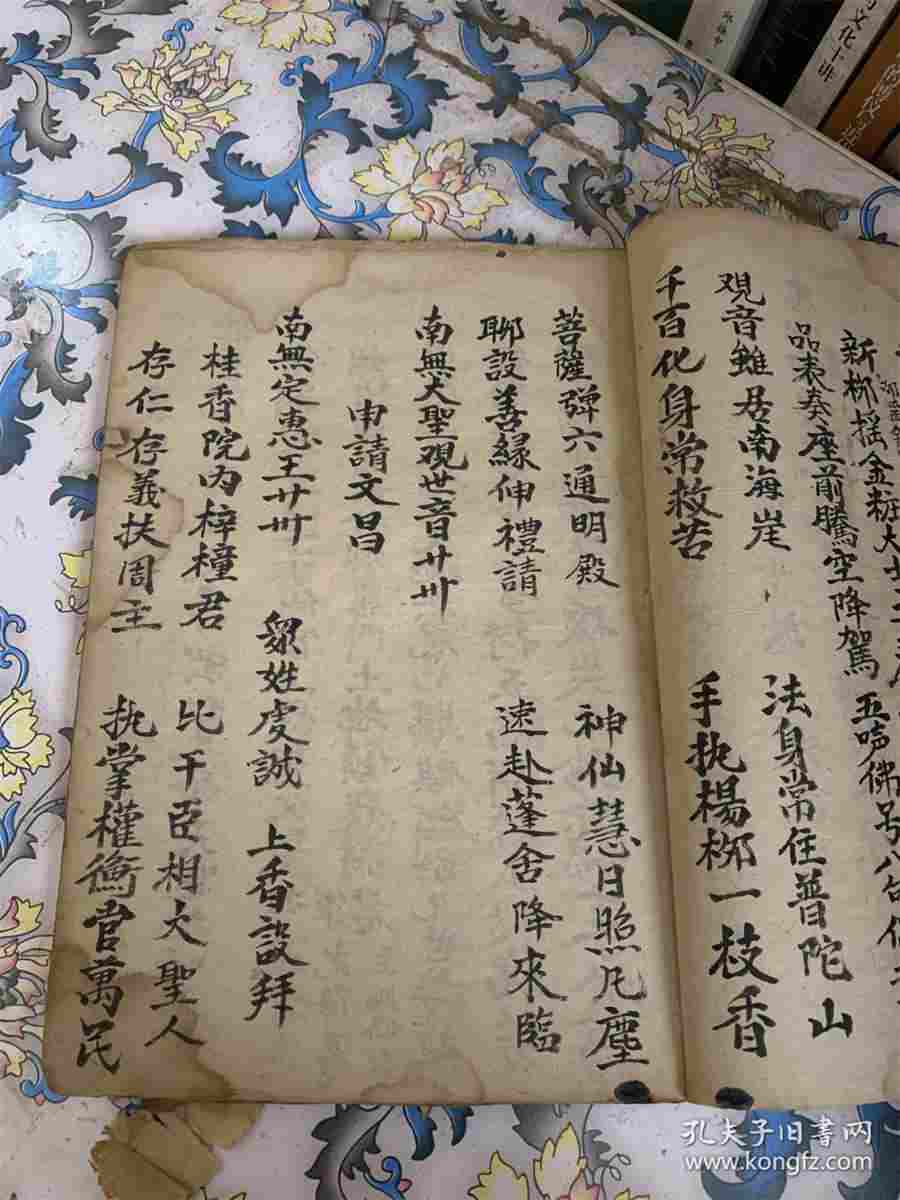 新栁摇金粧大士
品表奏座前騰空降駕 五吽佛号八句偈
观音雖居南海崖 法身常住普陀山
千百化身常救苦 手执楊栁一枝香
菩薩彈六通明殿 神仙慧日照凡塵
聊設善緣伸禮請 速赴蓬舍降來臨
南無大聖观世音卄卅
申請文昌
南無定惠王卄卅 眾姓虔誠 上香設拜
桂香院内梓橦君 比干臣相大聖人
存仁存義扶周主 执掌權衡官萬民
文化十讲
孔夫子旧书网
www.kongfz.com